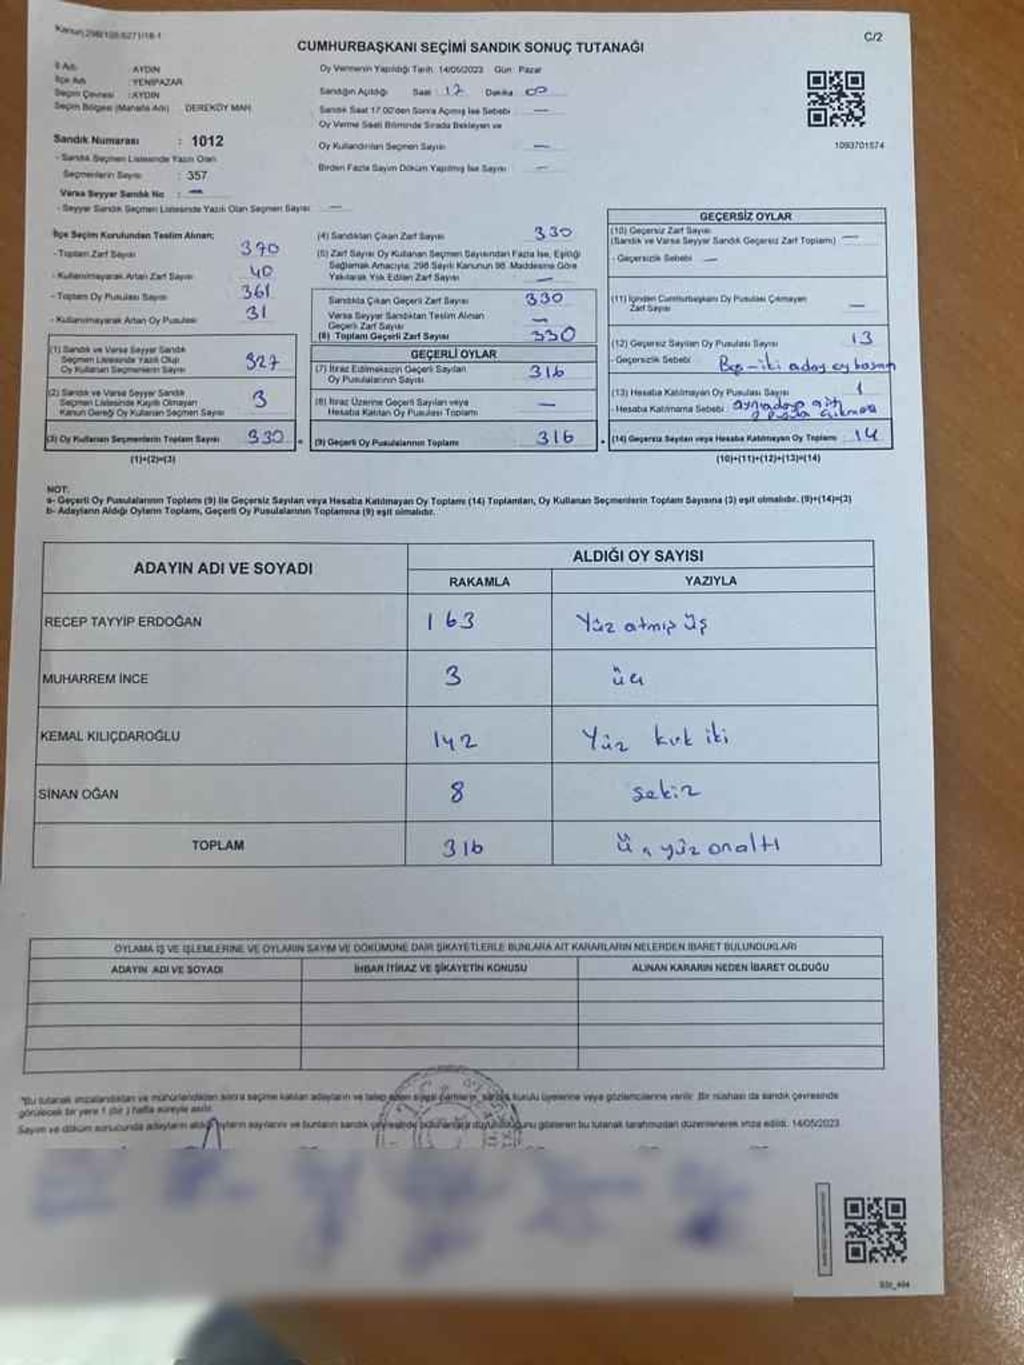 C/2
CUMHURBAŞKANI SEÇİMİ SANDIK SONUÇ TUTANAĞI
İl Adı : AYDIN
İlçe Adı : YENİPAZAR
Seçim Çevresi : AYDIN
Seçim Bölgesi (Mahalle Adı) DEREKÖY MAH.
Sandık Numarası : 1012
- Sandık Seçmen Listesinde Yazılı Olan
Seçmenlerin Sayısı : 357
Varsa Seyyar Sandık No : —
- Seyyar Sandık Seçmen Listesinde Yazılı Olan Seçmen Sayısı —
Oy Vermenin Yapıldığı Tarih: 14/05/2023 Gün: Pazar
Sandığın Açıldığı Saat : 17 Dakika
Sandık Saat 17.00'den Sonra Açılmış İse Sebebi —
Oy Verme Saati Bitiminde Sırada Bekleyen ve
Oy Kullandırılan Seçmen Sayısı —
Birden Fazla Sayım Döküm Yapılmış İse Sayısı —
1093701574
İlçe Seçim Kurulundan Teslim Alınan;
- Toplam Zarf Sayısı 370
- Kullanılmayarak Artan Zarf Sayısı 40
- Toplam Oy Pusulası Sayısı 361
- Kullanılmayarak Artan Oy Pusulası 31
(1) Sandık ve Varsa Seyyar Sandık
Seçmen Listesinde Yazılı Olup
Oy Kullanan Seçmenlerin Sayısı 327
(2) Sandık ve Varsa Seyyar Sandık
Seçmen Listesinde Kayıtlı Olmayan
Kanun Gereği Oy Kullanan Seçmen Sayısı 3
(3) Oy Kullanan Seçmenlerin Toplam Sayısı 330
(1)+(2)=(3)
(4) Sandıktan Çıkan Zarf Sayısı 330
(5) Zarf Sayısı Oy Kullanan Seçmen Sayısından Fazla İse, Eşitliği
Sağlamak Amacıyla, 298 Sayılı Kanunun 98. Maddesine Göre
Yakılarak Yok Edilen Zarf Sayısı —
Sandıkta Çıkan Geçerli Zarf Sayısı 330
Varsa Seyyar Sandıktan Teslim Alınan
Geçerli Zarf Sayısı —
(6) Toplam Geçerli Zarf Sayısı 330
GEÇERLİ OYLAR
(7) İtiraz Edilmeksizin Geçerli Sayılan
Oy Pusulalarının Sayısı 316
(8) İtiraz Üzerine Geçerli Sayılan veya
Hesaba Katılan Oy Pusulası Toplamı —
(9) Geçerli Oy Pusulalarının Toplamı 316
GEÇERSİZ OYLAR
(10) Geçersiz Zarf Sayısı
(Sandık ve Varsa Seyyar Sandık Geçersiz Zarf Toplamı) —
- Geçersizlik Sebebi —
(11) İçinden Cumhurbaşkanı Oy Pusulası Çıkmayan
Zarf Sayısı —
(12) Geçersiz Sayılan Oy Pusulası Sayısı 13
- Geçersizlik Sebebi iki aday
(13) Hesaba Katılmayan Oy Pusulası Sayısı 1
- Hesaba Katılmama Sebebi
(14) Geçersiz Sayılan veya Hesaba Katılmayan Oy Toplamı 14
(10)+(11)+(12)+(13)=(14)
NOT:
a- Geçerli Oy Pusulalarının Toplamı (9) ile Geçersiz Sayılan veya Hesaba Katılmayan Oy Toplamı (14) Toplamları, Oy Kullanan Seçmenlerin Toplam Sayısına (3) eşit olmalıdır. (9)+(14)=(3)
b- Adayların Aldığı Oyların Toplamı, Geçerli Oy Pusulalarının Toplamına (9) eşit olmalıdır.
ADAYIN ADI VE SOYADI ALDIĞI OY SAYISI
RAKAMLA YAZIYLA
RECEP TAYYİP ERDOĞAN 163 Yüz atmış üş
MUHARREM İNCE 3 üç
KEMAL KILIÇDAROĞLU 142 Yüz kırk iki
SİNAN OĞAN 8 sekiz
TOPLAM 316 Üç yüz onaltı
OYLAMA İŞ VE İŞLEMLERİNE VE OYLARIN SAYIM VE DÖKÜMÜNE DAİR ŞİKAYETLERLE BUNLARA AİT KARARLARIN NELERDEN İBARET BULUNDUKLARI
ADAYIN ADI VE SOYADI İHBAR İTİRAZ VE ŞİKAYETİN KONUSU ALINAN KARARIN NEDEN İBARET OLDUĞU
"Bu tutanak imzalandıktan ve mühürlendikten sonra seçime katılan adayların ve talep eden siyasi partilerin, sandık kurulu üyelerine veya gözlemcilerine verilir. Bir nüshası da sandık çevresinde
görülecek bir yere 1 (bir) hafta süreyle asılır.
Sayım ve döküm sonucunda adayların aldığı oyların sayılarını ve bunların sandık çevresinde gösteren bu tutanak tarafımızdan düzenlenerek imza edildi. 14/05/2023